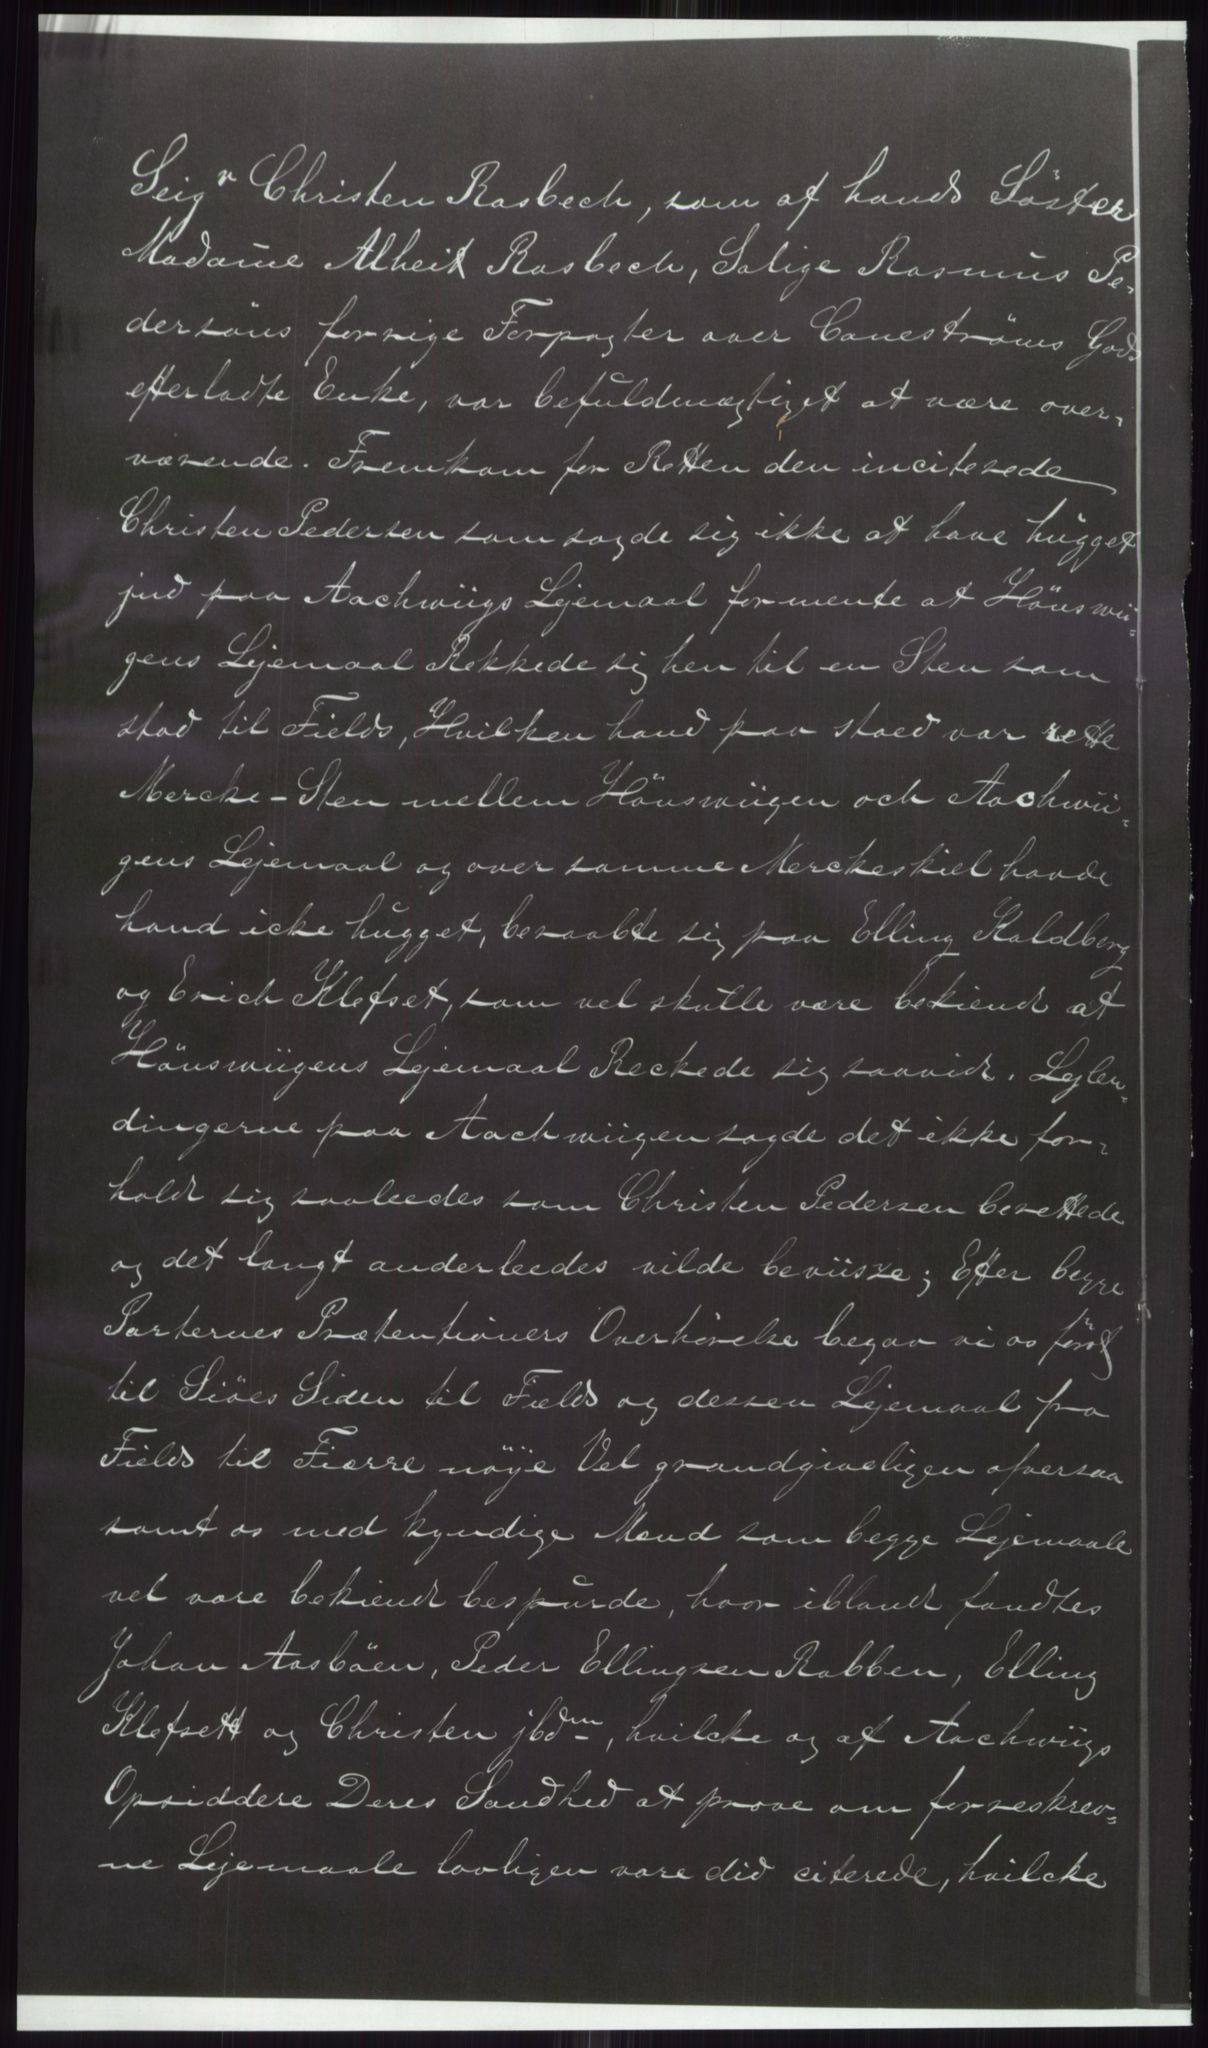 Seigr Christen Rasbech, som af hands Söster
Madame Alheit Rasbech, Salige Rasmus Pe-
dersöns forrige Forpagter over Caneströms Gods
efterladte Enke, var befuldmægtiget at være over-
værende. Fremkom for Retten den inciterede
Christen Pedersen som sagde sig ikke at have hugget
jnd paa Aachwiigs Lejemaal formente at Hönswii-
gens Lejemaal Rekkede sig hen til en Sten som
stod til Fields, Hvilken hand paa stoed var rette
Mercke-Sten mellem Hönswiigen och Aachwii-
gens Lejemaal og over samme Merckeskiel havde
hand icke hugget, beraabte sig paa Elling Kaldberg
og Erich Klefset, som vel skulle være bekiendt at
Hönswiigens Lejemaal Reckede sig saavidt. Lejlen-
dingerne paa Aachwiigen sagde det ikke for-
holdt sig saaleedes som Christen Pedersen berettede
og det langt anderleedes vilde beviisse; Efter begge
Parternes Prætentioners Overhörelse begav vi os först
til Siöes Siden til Fields og dessen Lejemaal fra
Fields til Fiærre nöÿe Vel grandgiveligen ofversaa
samt os med kyndige Mænd som begge Lejemaale
vel vare bekiendt bespurde, hvor iblandt fandtes
Johan Aasböen, Peder Ellingsen Rabben, Elling
Klefsett og Christen jbdm, hvilcke og af Aachwiigs
Opsiddere Deres Sandhed at prove om forreskrev-
ne Lejemaale lovligen vare did citerede, hvilcke